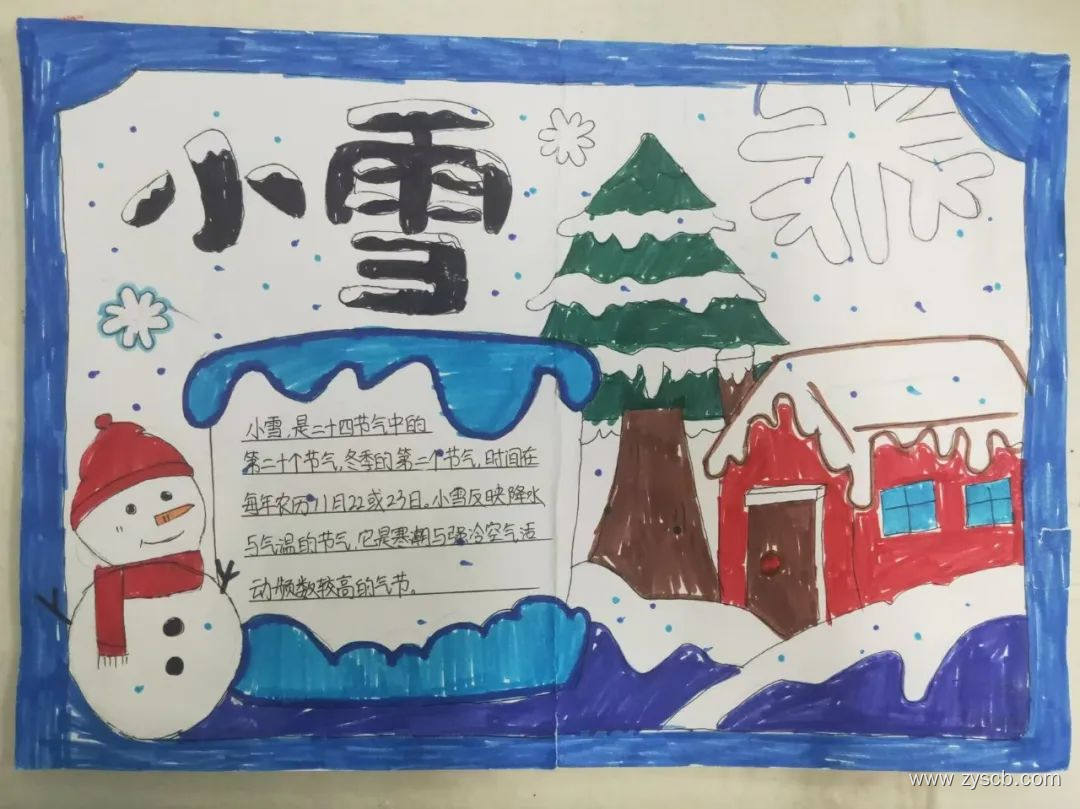 小雪
小雪,是二十四节气中的
第二十个节气,冬季的第二个节气,时间在
每年农历11月22或23日。小雪反映降水
与气温的节气,它是寒潮与强冷空气活
动频数较高的气节。
www.zyscb.com